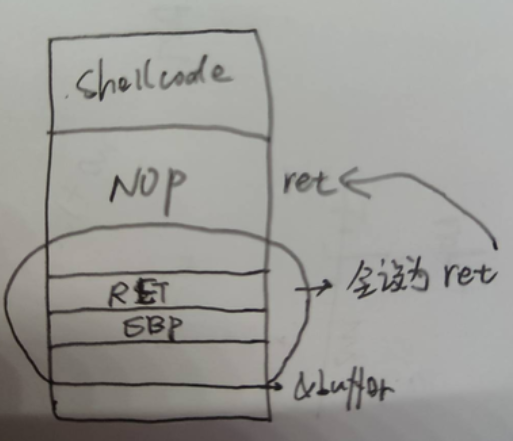 Shellcode
NOP
ret
RET
全设为 ret
EBP
&buffer